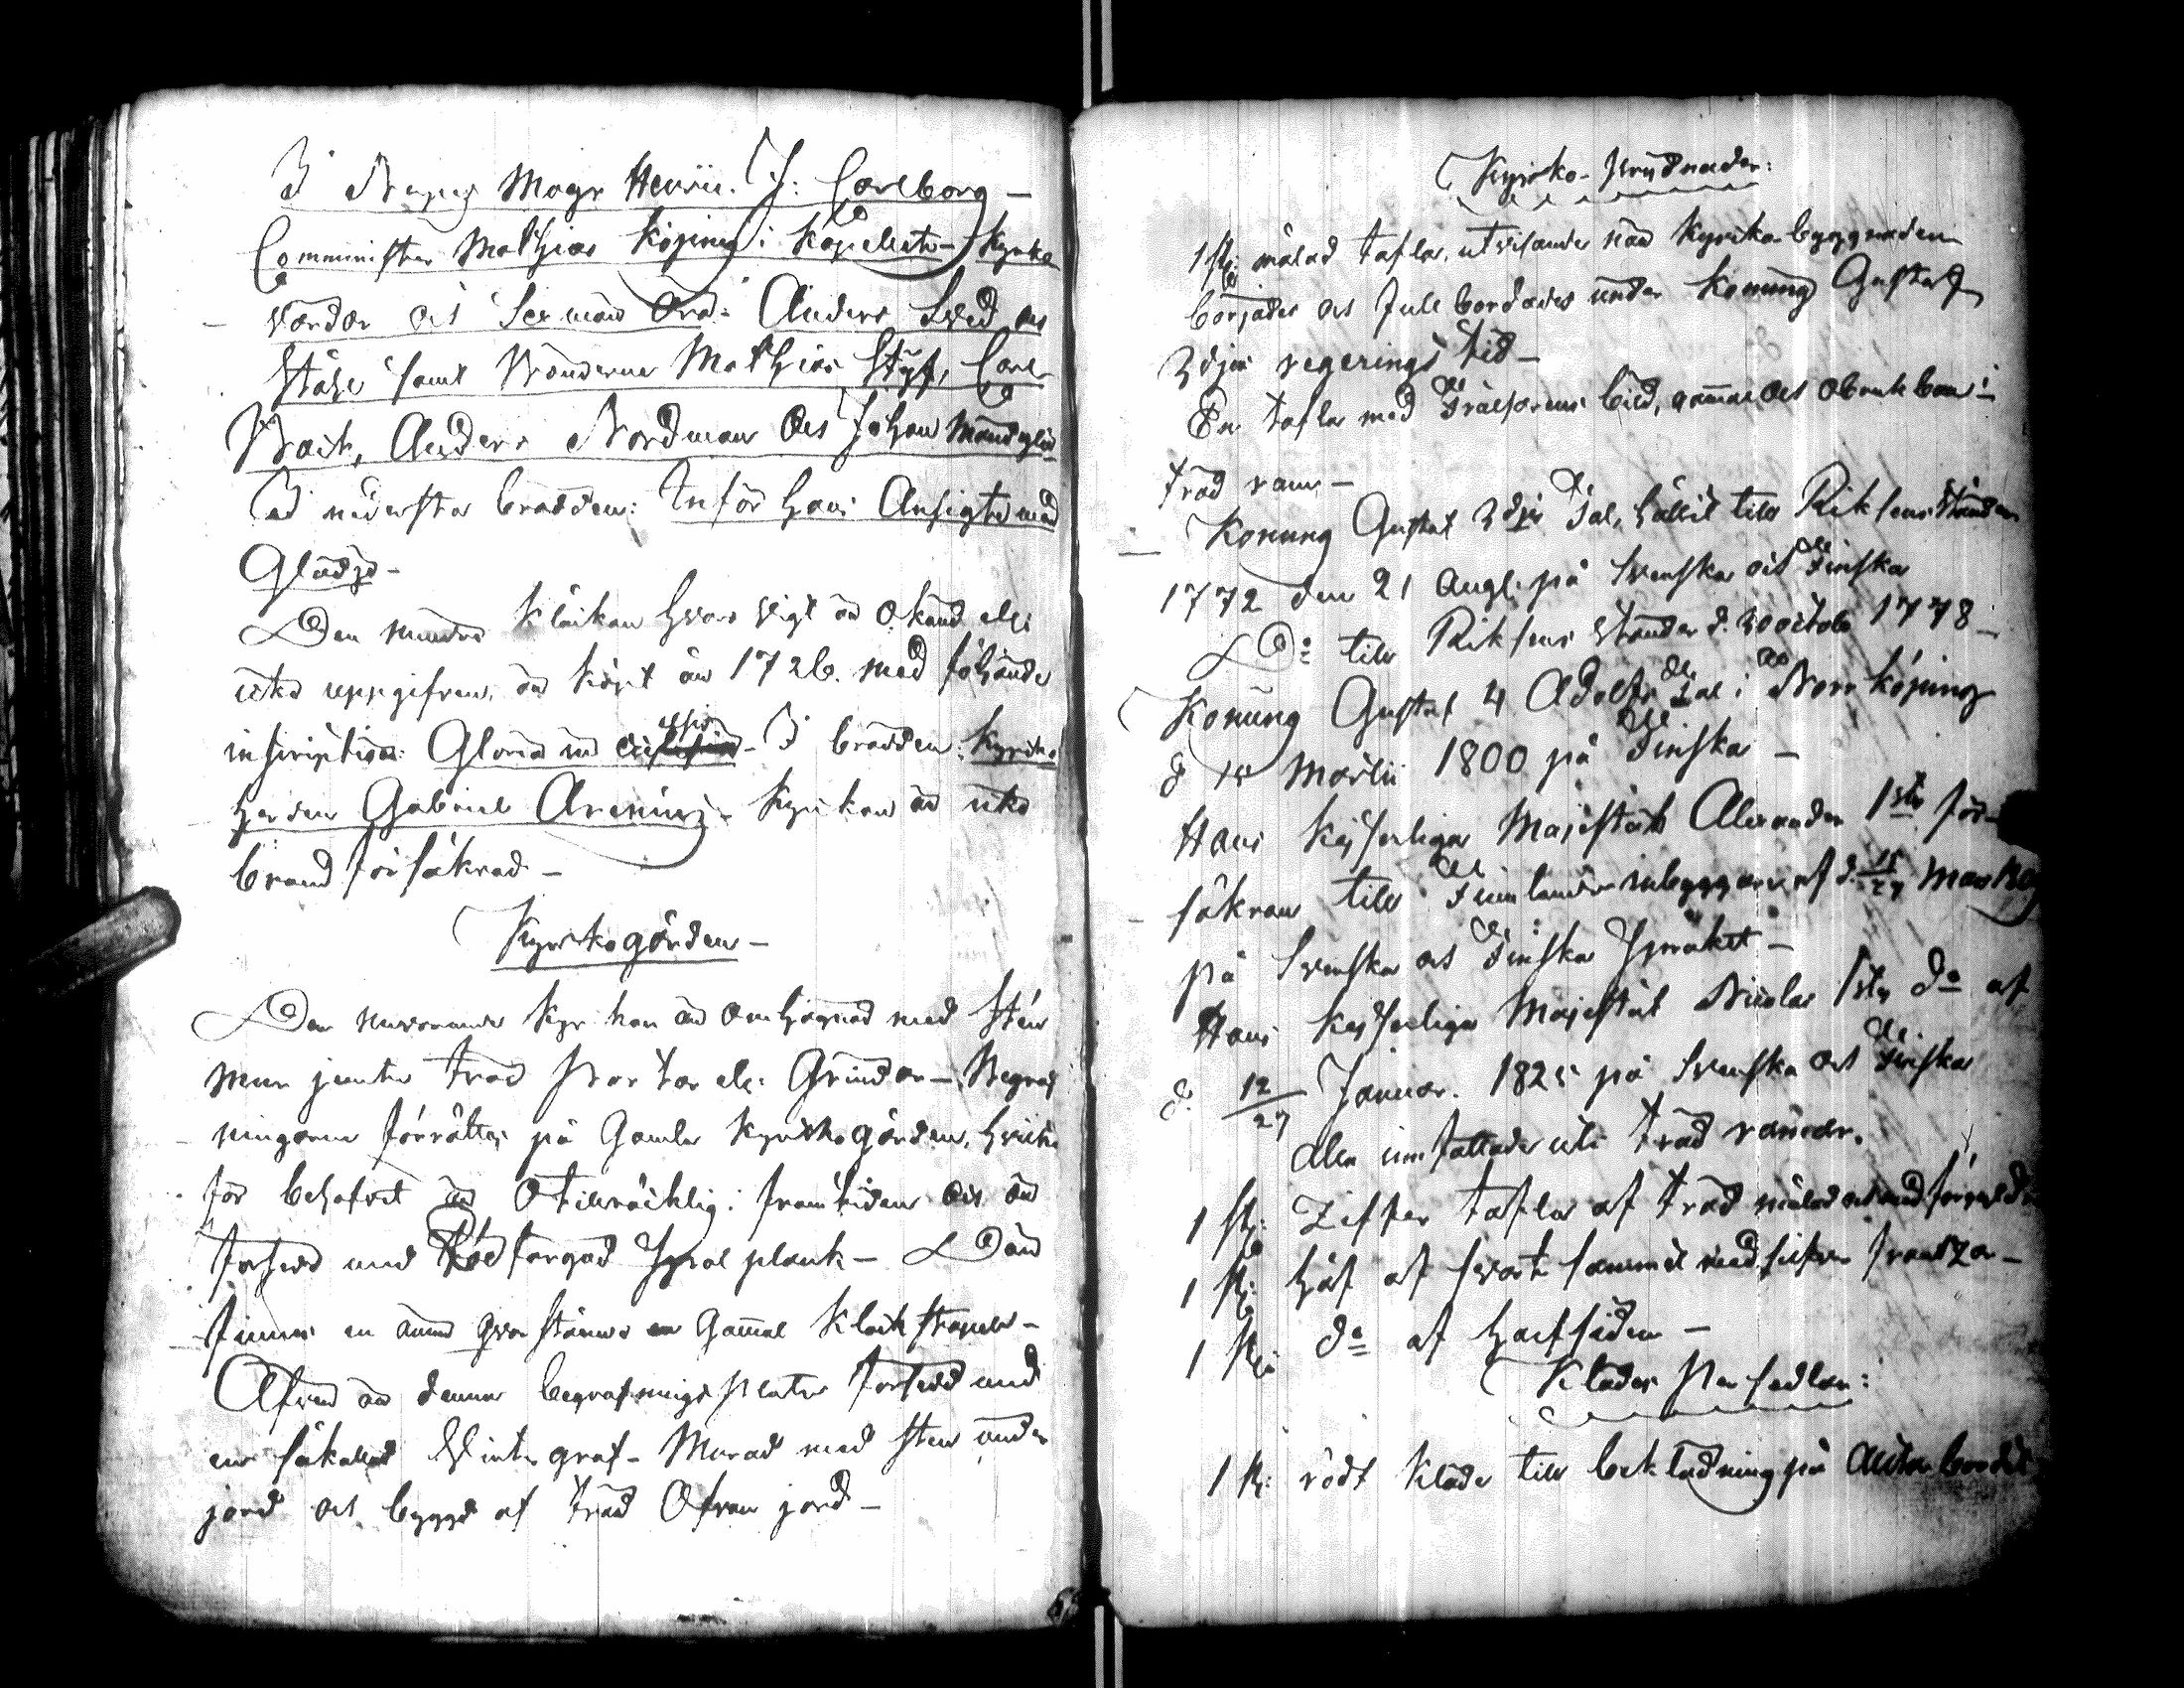 I Magr Henric. J: Carlborg —
Comminister Mathias Köping i Kapellet — Kyrko
värdar och Sexmän Anders Sved och
Ståhl samt Bönderne Mathias Styf, Carl
Back, Anders Nordman och Johan
På nedersta brädden: Inför hans Ansigte med
Glädje —
Den mindre Klåckan hvars vigt är okänd ell:
icke uppgifven, är köpt år 1726. med följande
inscription: Gloria in — I brädden: Kyrko
herden Gabriel Arenius — Kyrkan är icke
brand försäkrad —
Kyrkogården —
Den nuvarande Kyrkan är omhägnad med Sten
mur jemte träd Portar ell: Grindar — Begraf
ningarne förrättas på Gamla Kyrkogården, hvilken
för behofvet är otillräcklig i framtiden och är
försedd med Rödfärgad Spjal plank — Där
finnes en ännu qvarstående Gammal Klockstapel —
Äfven är denna begrafningsplats försedd med
en såkallad Vintergraf — Murad med sten under
jord och byggd af träd Ofvan jord —
Kyrko-Prydnader:
1 st: målad tafla, utvisande när Kyrko byggnaden
börjades och fullbordades under Konung Gustaf
3djes regerings tid —
En tafla med Frälsarens bild, gammal och obrukbar i
träd ram —
Konung Gustaf 3djes Tal, hållit till Riksens Ständer
1772 den 21 Aug. på Svenska och Finska
Do till Riksens Ständer d. 30 octob 1778 —
Konung Gustaf 4 Adolfs Tal i Norrköping
d 15 Martii 1800 på Finska —
Hans Kejserliga Majestäts Alexander 1sta för-
säkran till Finnlands inbyggare af d. 15/27 Mars
på Svenska och Finska Språket —
Hans Kejserliga Majestät Nicolai 1sta do af
d. 12/27 Januar. 1825 på Svenska och Finska
Alla innfattade uti träd ramar.
1 st: Ziffer tafla af träd målad och med
1 st: håf af svart sammet med silfver frantzar —
1 st: do af halfsiden —
Klädes Persedlar:
1 st: rödt Kläde till beklädning på Altar bordet